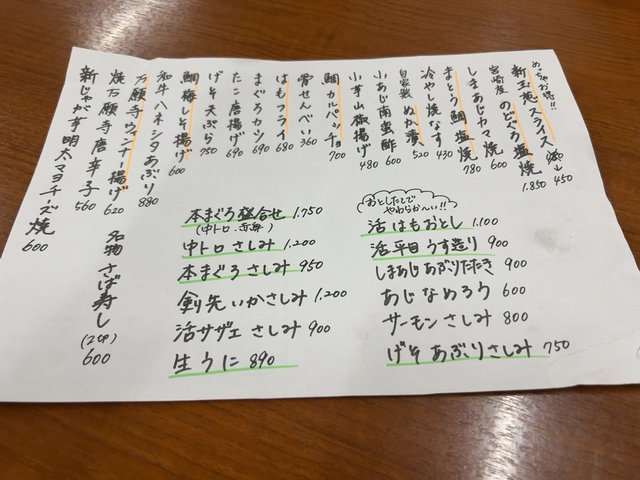 めっちゃお得!!
新玉葱スライス 450
宮崎産 のどぐろ塩焼 1.850
しまあじカマ焼 600
まとう鯛塩焼 780
冷やし焼なす 430
自家製 ぬか漬 520
小あじ南蛮酢 600
小芋山椒揚げ 480
鯛カルパッチョ 700
骨せんべい 360
はもフライ 680
まぐろカツ 690
たこ唐揚げ 690
げそ天ぷら 750
鯛梅しそ揚げ 600
和牛ハネシタあぶり 880
万願寺ウィンナー揚げ 620
焼万願寺唐辛子 560
新じゃが芋明太マヨチーズ焼 600
名物 さば寿し (2ケ) 600
本まぐろ盛合せ 1.750
(中トロ.赤身)
中トロさしみ 1.200
本まぐろさしみ 950
剣先いかさしみ 1.200
活サザエさしみ 900
生うに 890
おとしたてで
やわらか〜い!!
活はもおとし 1.100
活平目うす造り 900
しまあじあぶりたたき 900
あじなめろう 600
サーモンさしみ 800
げそあぶりさしみ 750